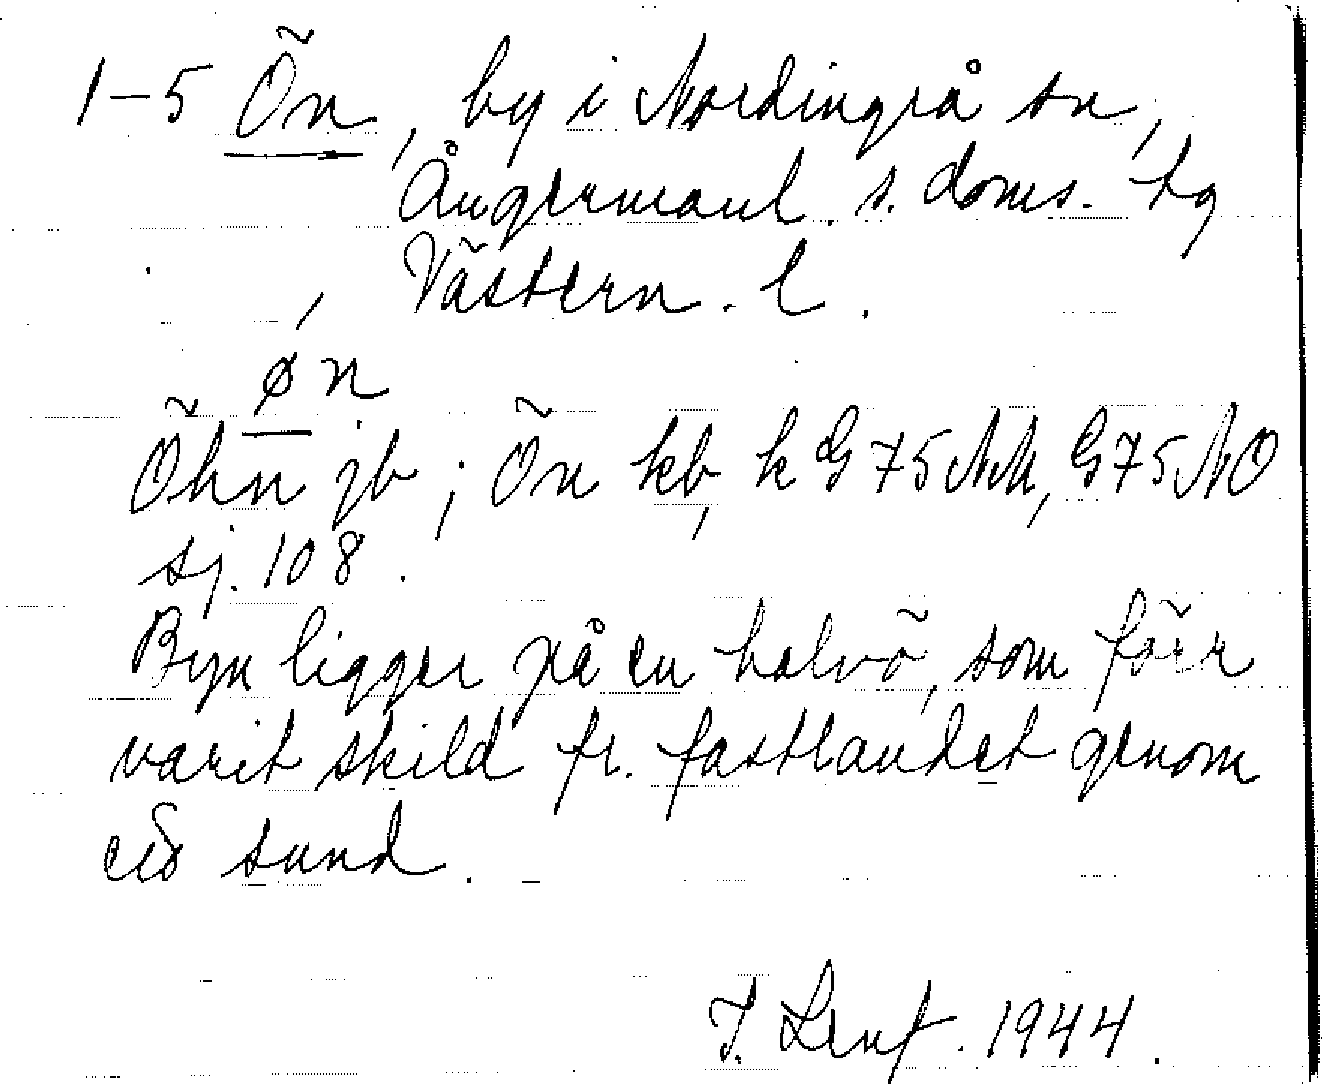 1-5 Ön, by i Nordingrå sn,
Ångermanl. s. doms. tg
Västern. l.
øn
Öhn jb; Ön kb, k G75NM, G75NO
sj. 108.
Byn ligger på en halvö, som förr
varit skild fr. fastlandet genom
ett sund.
J. Lenf. 1944.